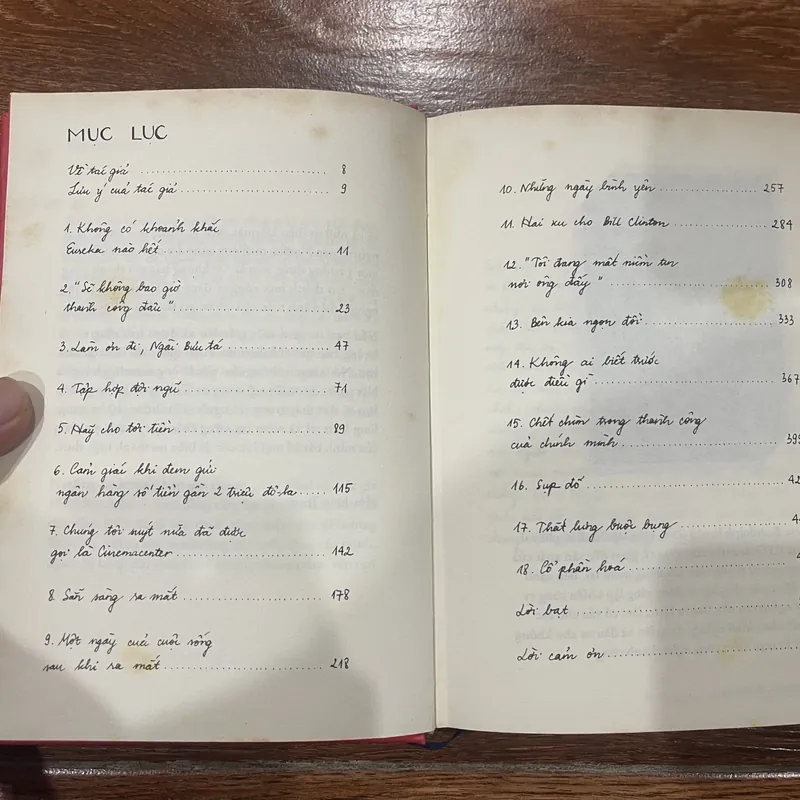 MỤC LỤC
Về tác giả ........ 8
Lưu ý của tác giả ........ 9
1. Không có khoảnh khắc
Eureka nào hết ........ 11
2. "Sẽ không bao giờ
thành công đâu" ........ 23
3. Làm ơn đi, Ngài Bưu tá ........ 47
4. Tập hợp đội ngũ ........ 71
5. Hãy cho tôi tiền ........ 89
6. Cảm giác khi đem gửi
ngân hàng số tiền gần 2 triệu đô-la ........ 115
7. Chúng tôi suýt nữa đã được
gọi là Cinemacenter ........ 142
8. Sẵn sàng ra mắt ........ 178
9. Một ngày của cuộc sống
sau khi ra mắt ........ 218
10. Những ngày bình yên ........ 257
11. Hai xu cho Bill Clinton ........ 284
12. "Tôi đang mất niềm tin
nơi ông đấy" ........ 308
13. Bên kia ngọn đồi ........ 333
14. Không ai biết trước
được điều gì ........ 367
15. Chết chìm trong thành công
của chính mình ........ 399
16. Sụp đổ ........ 42
17. Thắt lưng buộc bụng ........ 4
18. Cổ phần hoá ........ 4
Lời bạt ........
Lời cảm ơn ........